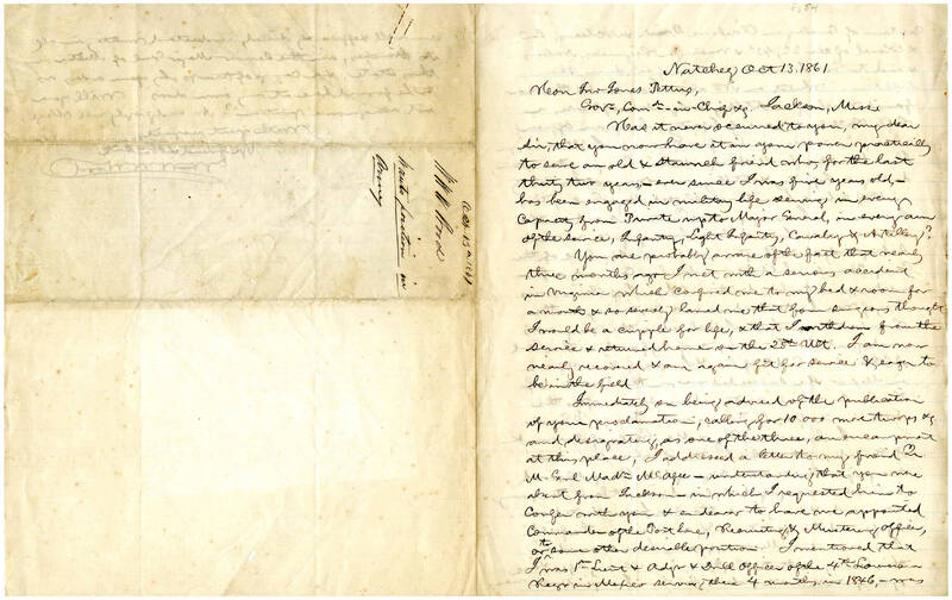 Oct 13th 1861
W W W Wood
Wants position in
Army
Natchez Oct 13. 1861
Jno Jones Pettus,
Govr., Com.dr-in-Chief &c. Jackson, Miss.
Has it never occurred to you, my dear
Sir, that you now have it in your power practically
to serve an old & staunch friend who, for the last
thirty two years – ever since I was five years old –
has been engaged in military life serving in every
Capacity from Private up to Major General, in every arm
of the service, Infantry, Light Infantry, Cavalry & Artillery?
You are probably aware of the fact that nearly
three months ago I met with a serious accident
in Virginia which confined me to my bed & room for
a month & so severely lamed me that four surgeons thought
I would be a cripple for life, & that I withdrew from the
service & returned home on the 25th Ult. I am now
nearly recovered & am again fit for service & eager to
be in the field
Immediately on being advised of the publication
of your proclamation, calling for 10.000 more troops &c
and designating, as one of the three, an encampment
at this place, I addressed a letter to my friend
Genl Mad. McAfee – understanding that you were
absent from Jackson – in which I requested him to
Confer with you & endeavor to have me appointed
Commander of the Post here, Recruiting & Mustering officer,
or to some other desirable position I mentioned that
I was 1st Lieut & Adjt & Drill Officer of the 4th Louisiana
Regt in Mexico serving there 4 months in 1846, – was